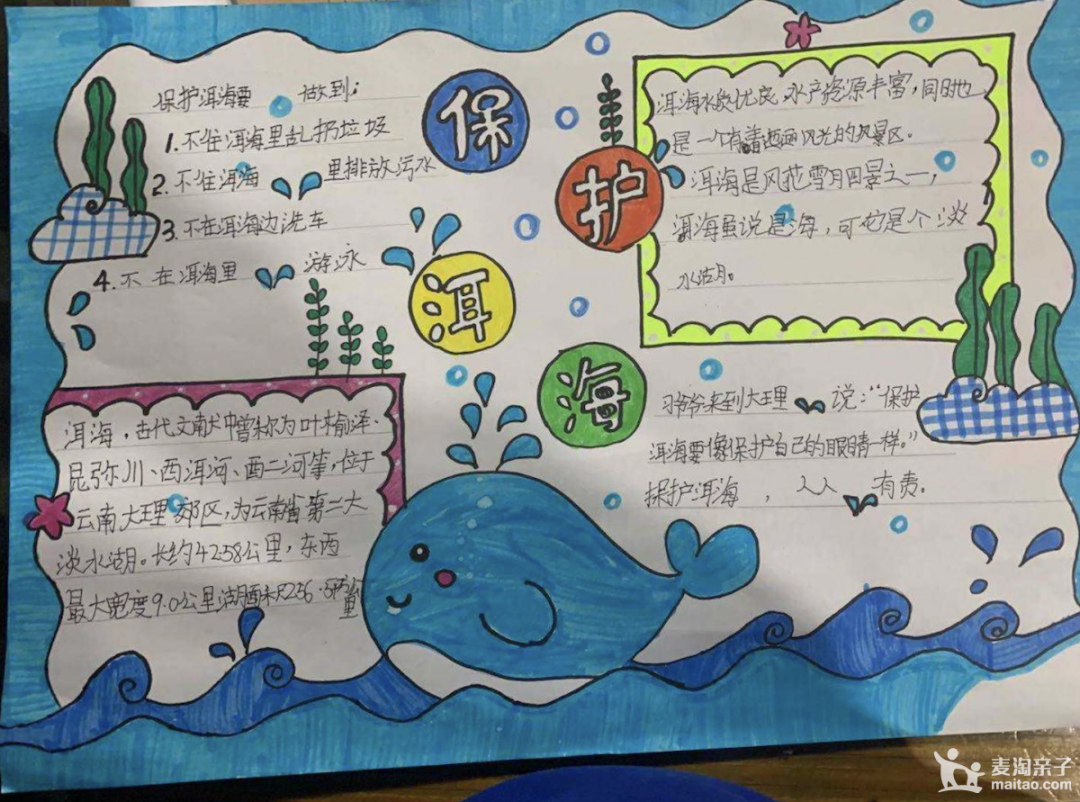 保护洱海要 做到：
1. 不往洱海里乱扔垃圾
2. 不往洱海 里排放污水
3. 不在洱海边洗车
4. 不在洱海里 游泳
保
护
洱
海
洱海水质优良，水产资源丰富，同时也
是一个有着 风光的风景区。
洱海是风花雪月四景之一，
洱海虽说是海，可它是个淡
水湖。
洱海，古代文献中曾称为叶榆泽、
昆弥川、西洱河、西二河等，位于
云南大理郊区，为云南省第二大
淡水湖。长约42.58公里，东西
最大宽度9.0公里湖面 256.5
里
习爷爷来到大理 说："保护
洱海要像保护自己的眼睛一样。"
保护洱海，人人 有责。
麦淘亲子
maitao.com